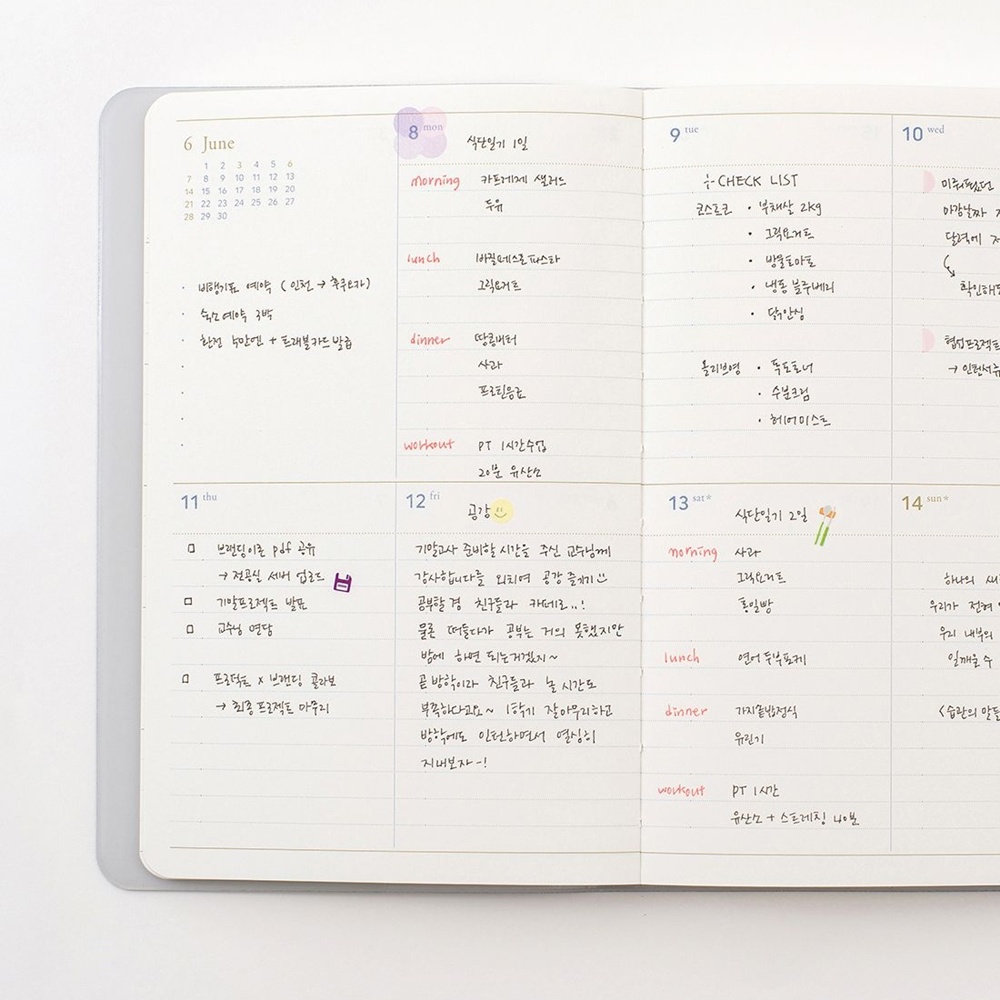 6 June
1 2 3 4 5 6
7 8 9 10 11 12 13
14 15 16 17 18 19 20
21 22 23 24 25 26 27
28 29 30
· 비행기표 예약 (인천 → 후쿠오카)
· 숙소예약 3박
· 환전 5만엔 + 트래블카드 발급
8 mon
식단일기 1일
morning 카프레제 샐러드
두유
lunch 바질페스토파스타
그릭요거트
dinner 땅콩버터
사과
프로틴음료
workout PT 1시간수업
20분 유산소
9 tue
CHECK LIST
코스트코 · 부채살 2kg
· 그릭요거트
· 방울토마토
· 냉동 블루베리
· 닭안심
올리브영 · 독도토너
· 수분크림
· 헤어미스트
10 wed
마감날짜
달력에
협업프로젝트
11 thu
□ 브랜딩이론 pdf 공유
→ 전공실 서버 업로드
□ 기말프로젝트 발표
□ 교수님 면담
□ 프로젝트 x 브랜딩 콜라보
→ 최종프로젝트 마무리
12 fri
공강
기말고사 준비할 시간을 주신 교수님께
감사합니다를 외치며 공강 즐기기
공부할 겸 친구들과 카페로..!
물론 떠들다가 공부는 거의 못했지만
밤에 하면 되는거겠지~
곧 방학이라 친구들과 놀 시간도
부족하다고요~ 1학기 잘마무리하고
방학에도 인턴하면서 열심히
지내보자-!
13 sat*
식단일기 2일
morning 사과
그릭요거트
통밀빵
lunch 연어두부포케
dinner 가지솥밥정식
유린기
workout PT 1시간
유산소 + 스트레칭 40분
14 sun*
하나의
우리가 전혀
우리 내부의
일깨울 수
<습관의 말들